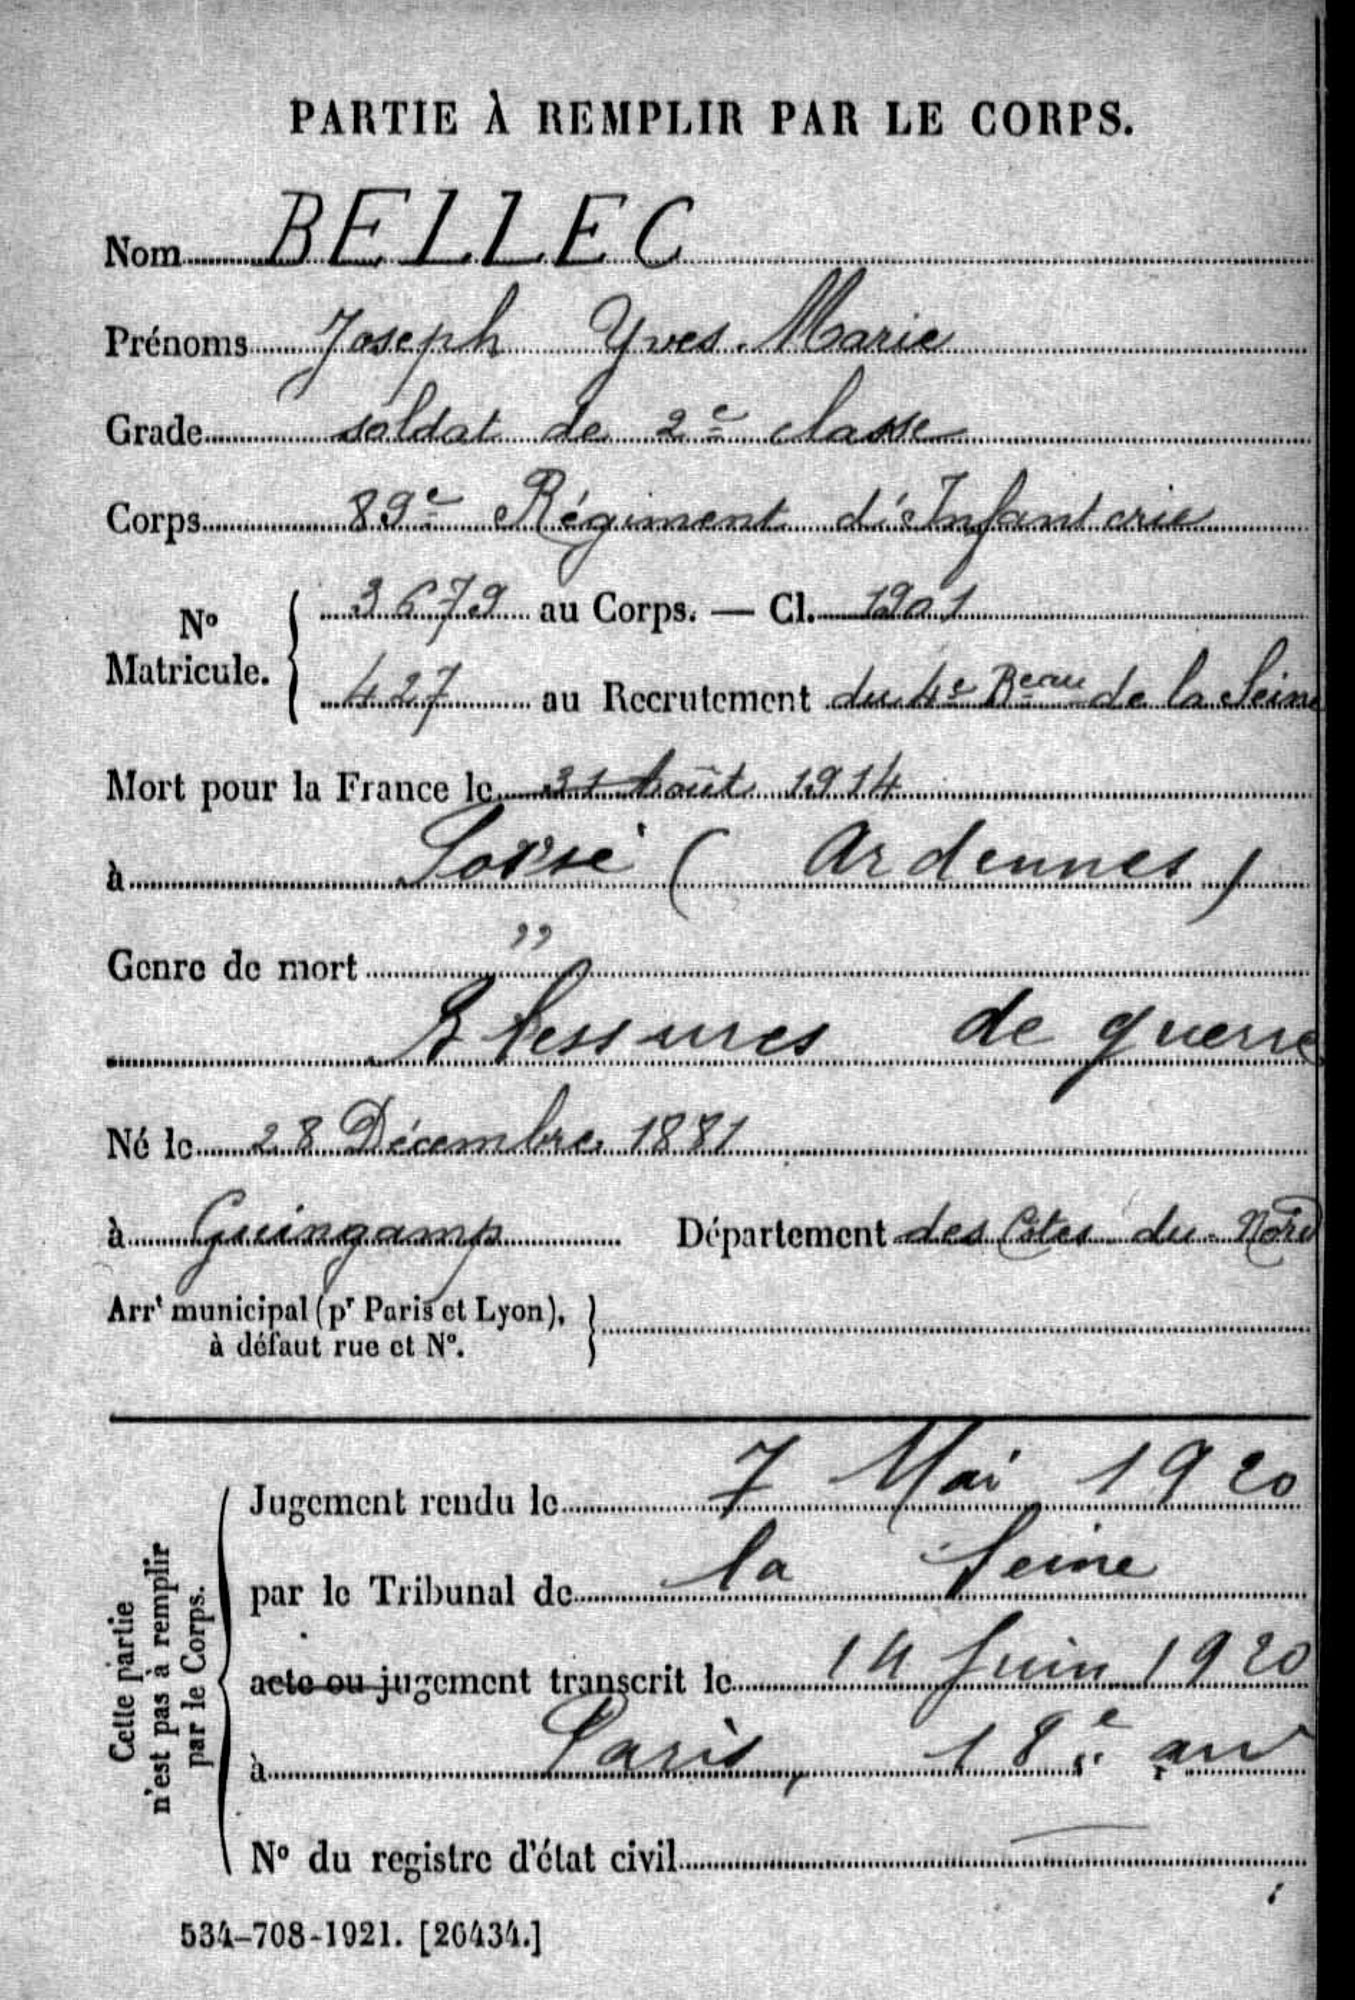 PARTIE À REMPLIR PAR LE CORPS.
Nom BELLEC
Prénoms Joseph Yves Marie
Grade soldat de 2e classe
Corps 89e Régiment d'Infanterie
No Matricule. 3679 au Corps. — Cl. 1901
427 au Recrutement du 4e Beau de la Seine
Mort pour la France le 31 Août 1914
à (Ardennes)
Genre de mort "
Blessures de guerre
Né le 28 Décembre 1881
à Guingamp Département des Côtes du Nord
Arrt municipal (pr Paris et Lyon),
à défaut rue et No.
Cette partie
n'est pas à remplir
par le Corps.
Jugement rendu le 7 Mai 1920
par le Tribunal de la Seine
acte ou jugement transcrit le 14 Juin 1920
à Paris, 18e arr
No du registre d'état civil
534-708-1921. [26434.]